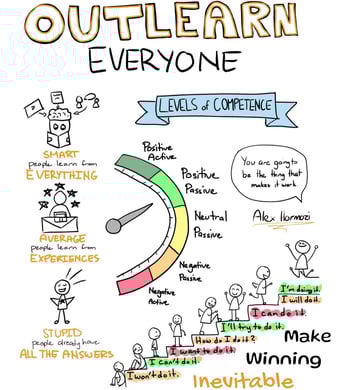 OUTLEARN
EVERYONE
LEVELS of COMPETENCE
SMART
people learn from
EVERYTHING
AVERAGE
people learn from
EXPERIENCES
STUPID
people already have
ALL THE ANSWERS
Positive
Active
Positive
Passive
Neutral
Passive
Negative
Passive
Negative
Active
You are going to
be the thing that
makes it work
Alex Hormozi
I'm doing it.
I will do it.
I can do it.
I'll try to do it.
How do I do it?
I want to do it.
I can't do it.
I won't do it.
Make
Winning
Inevitable